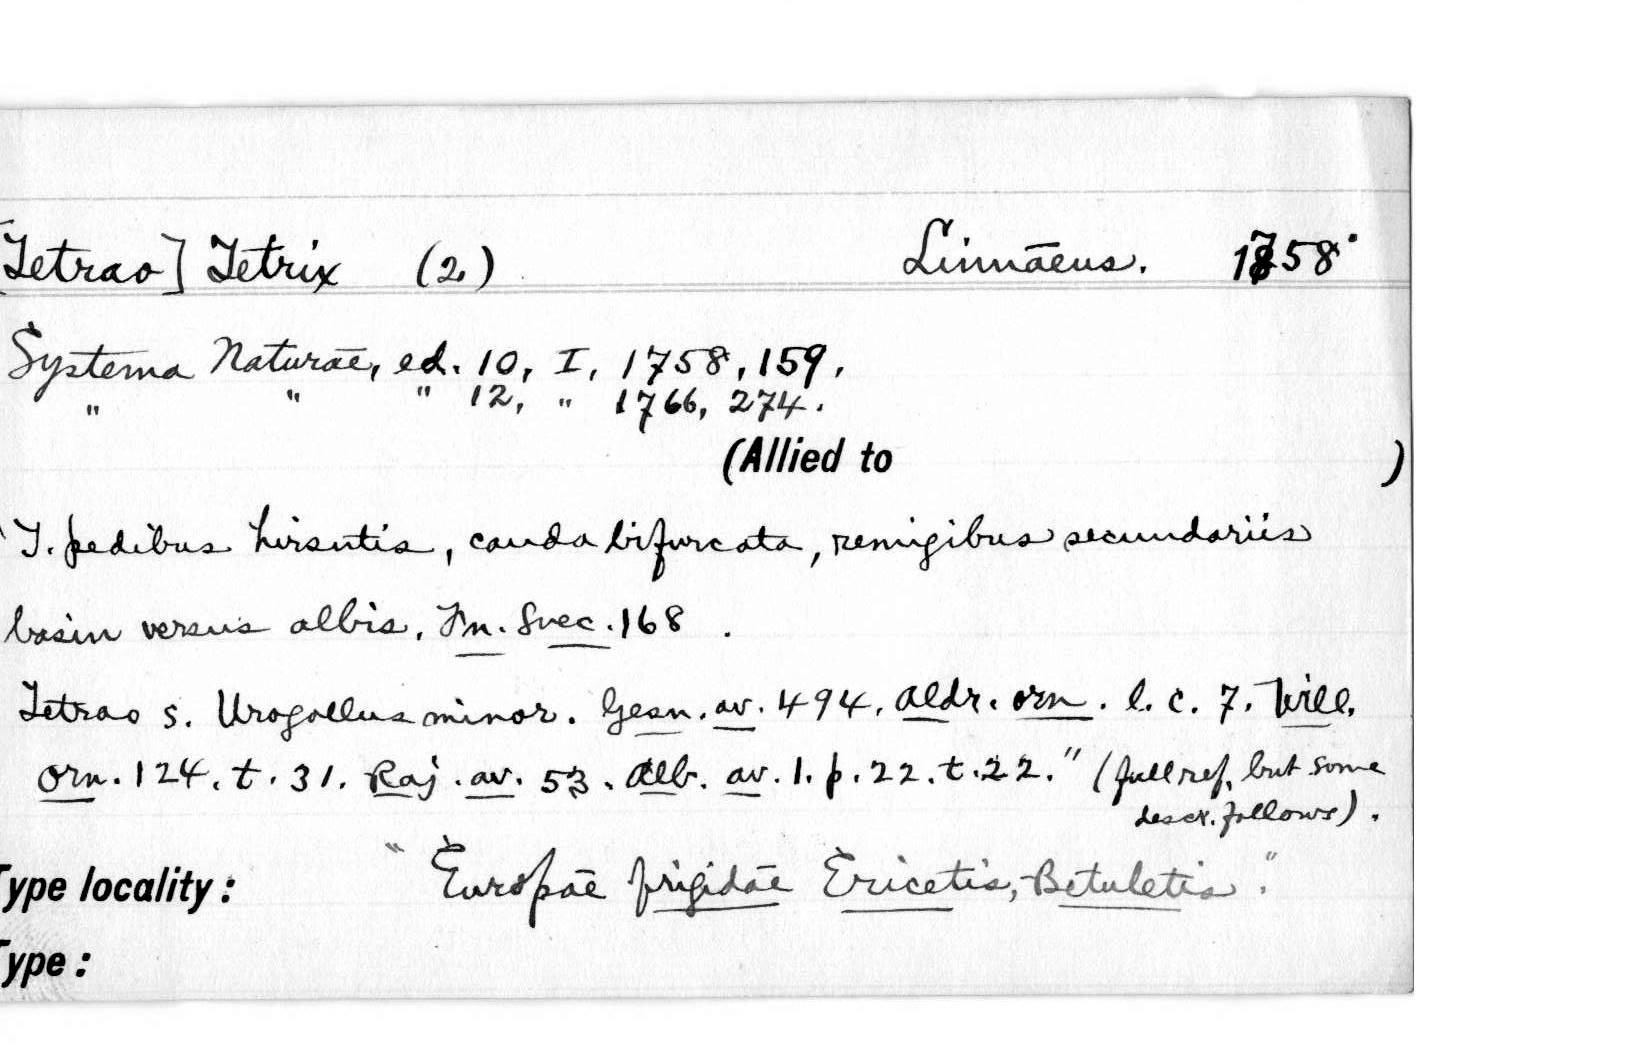 [Tetrao] Tetrix (2) Linnaeus. 1758.
Systema Naturae, ed. 10, I, 1758, 159,
" " " 12, " 1766, 274.
(Allied to )
"T. pedibus hirsutis, cauda bifurcata, remigibus secundariis
basin versus albis. Fn. Svec. 168 .
Tetrao s. Urogallus minor. Gesn. av. 494. Aldr. orn. l. c. 7. Will.
orn. 124. t. 31. Raj. av. 53. Alb. av. 1. p. 22. t. 22." (full ref, but some
descr. follows).
Type locality: "Europae frigidae Ericetis, Betuletis."
Type: